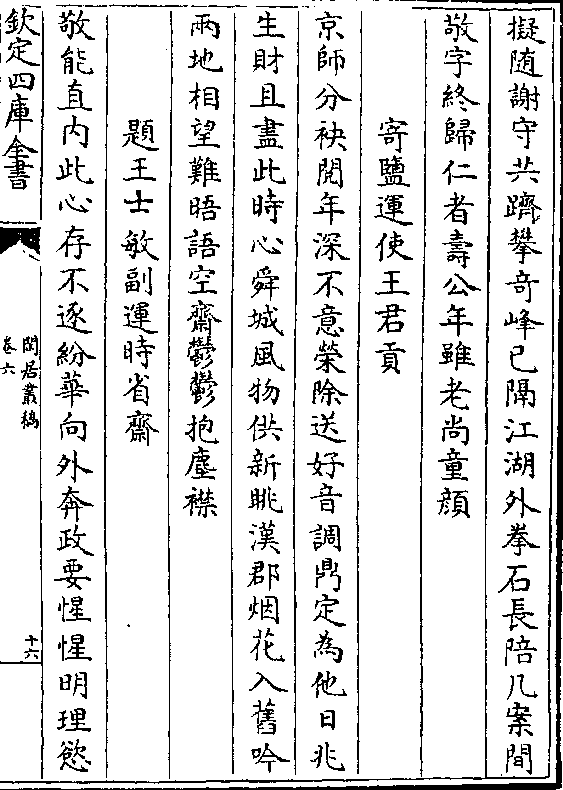 擬随謝守共躋攀竒峰已隔江湖外拳石長陪几案間
敬字終歸仁者壽公年雖老尚童顔
寄鹽運使王君貢
京師分袂閱年深不意榮除送好音調鼎定為他日兆
生財且盡此時心舜城風物供新眺漢郡烟花入舊吟
兩地相望難晤語空齋鬱鬱抱塵襟
題王士敏副運時省齋
敬能直内此心存不逐紛華向外奔政要惺惺明理慾
欽定四庫全書
閒居叢稿
卷六
十六